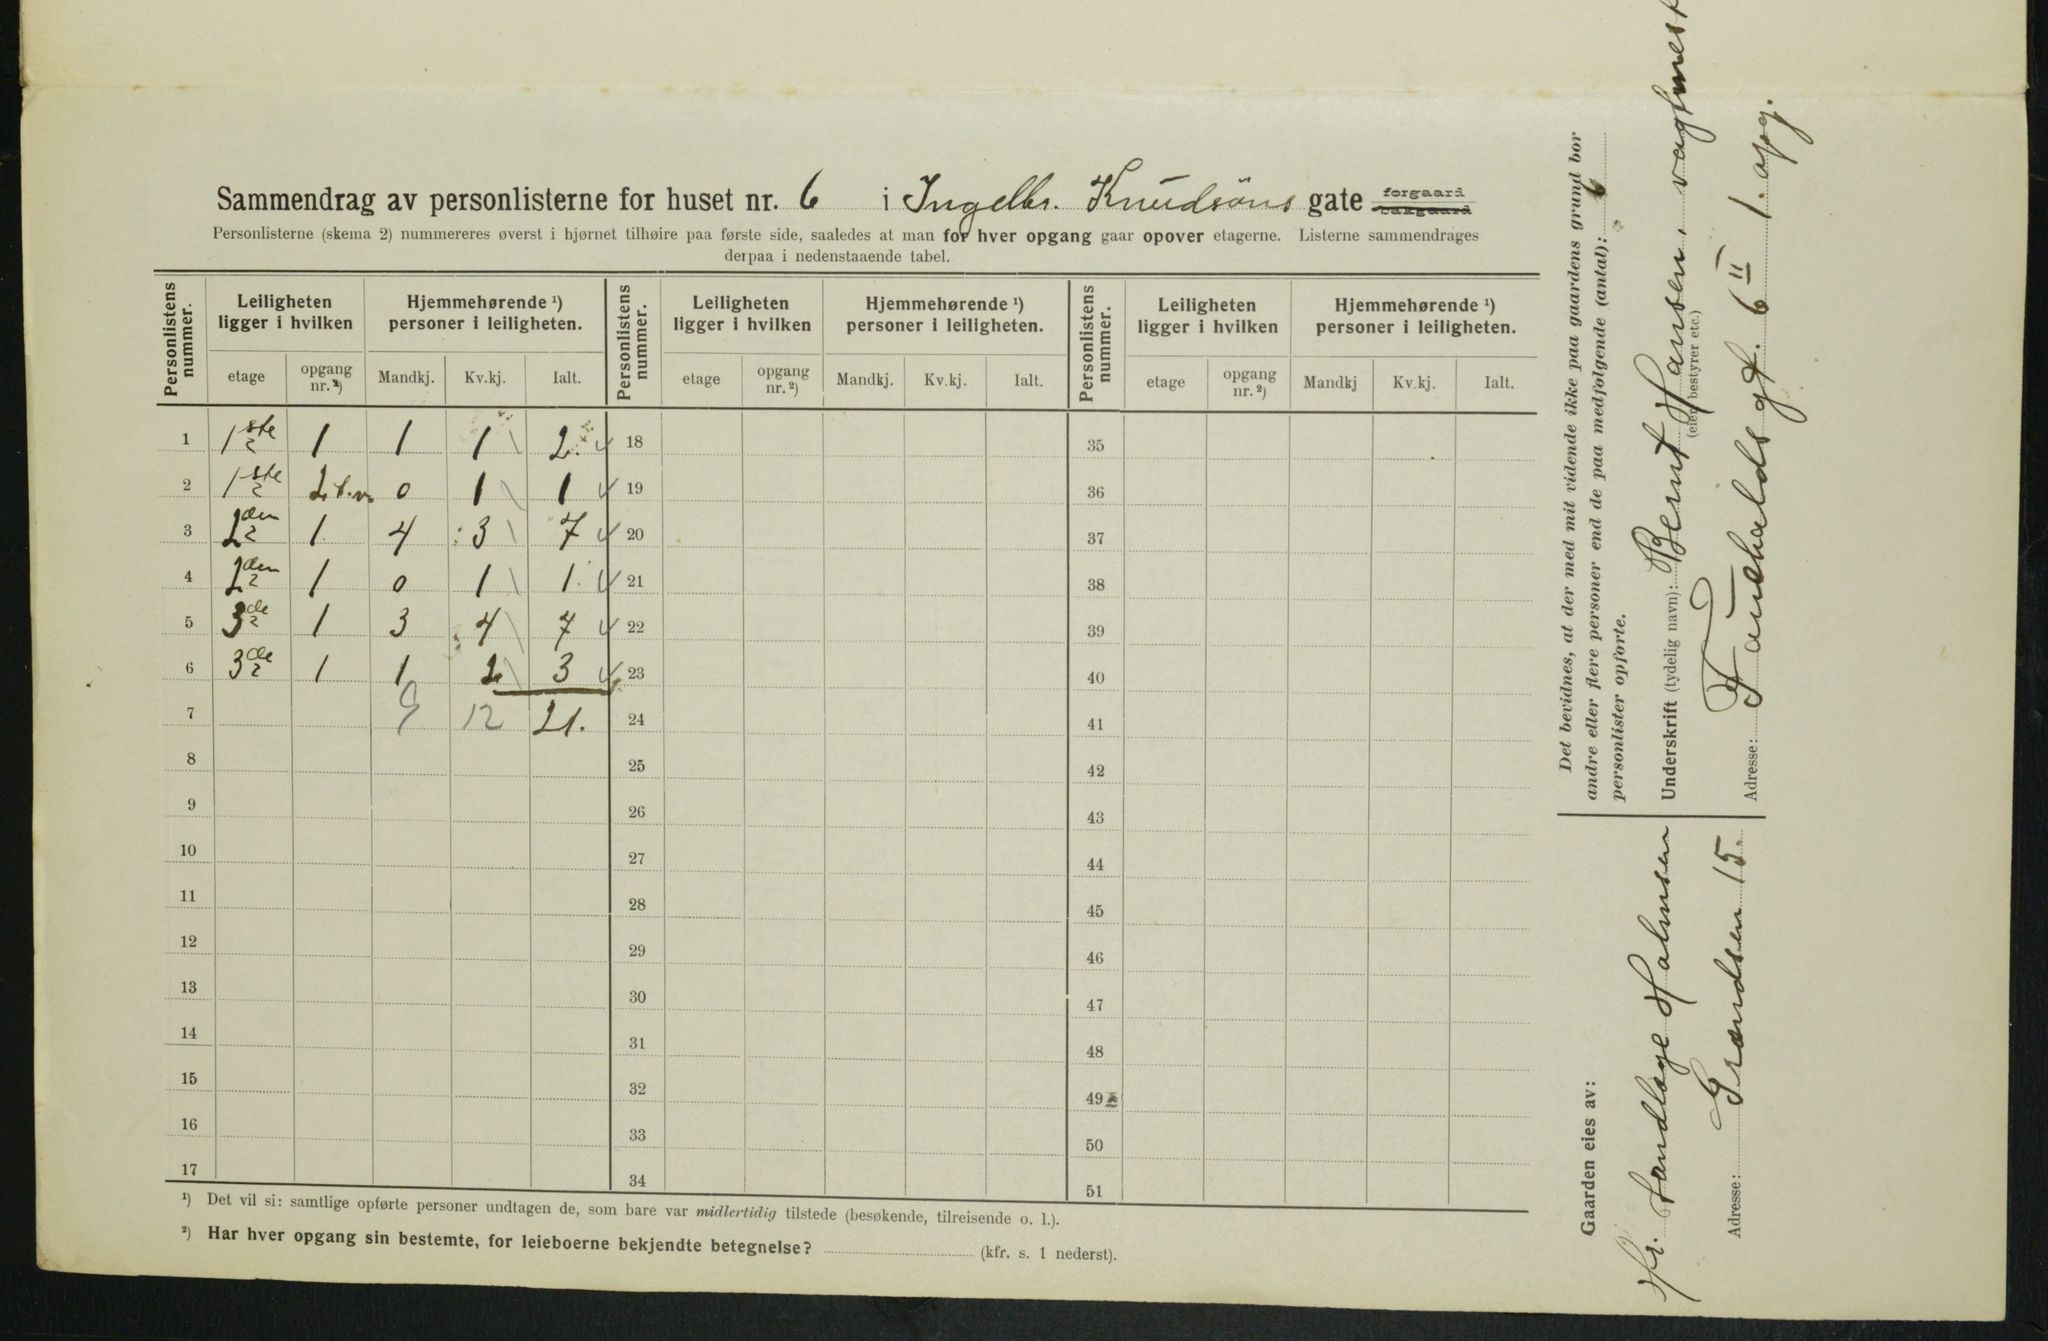 Sammendrag av personlisterne for huset nr. 6 i Ingelbr. Knudsöns gate forgaard
bakgaard
Personlisterne (skema 2) nummereres øverst i hjørnet tilhøire paa første side, saaledes at man for hver opgang gaar opover etagerne. Listerne sammendrages
derpaa i nedenstaaende tabel.
Personlistens nummer. Leiligheten ligger i hvilken Hjemmehørende ¹) personer i leiligheten. Personlistens nummer. Leiligheten ligger i hvilken Hjemmehørende ¹) personer i leiligheten. Personlistens nummer. Leiligheten ligger i hvilken Hjemmehørende ¹) personer i leiligheten.
etage opgang nr. ²) Mandkj. Kv.kj. Ialt. etage opgang nr. ²) Mandkj. Kv.kj. Ialt. etage opgang nr. ²) Mandkj Kv.kj. Ialt.
1 1ste 1 1 1 2. 18 35
2 1ste 2 0 1 1 19 36
3 2den 1 4 3 7 20 37
4 2den 1 0 1 1. 21 38
5 3de 1 3 4 7 22 39
6 3de 1 1 2 3 23 40
7 9 12 21. 24 41
8 25 42
9 26 43
10 27 44
11 28 45
12 29 46
13 30 47
14 31 48
15 32 49
16 33 50
17 34 51
¹) Det vil si: samtlige opførte personer undtagen de, som bare var midlertidig tilstede (besøkende, tilreisende o. l.).
²) Har hver opgang sin bestemte, for leieboerne bekjendte betegnelse? (kfr. s. 1 nederst).
Det bevidnes, at der med mit vidende ikke paa gaardens grund bor
andre eller flere personer end de paa medfølgende (antal): 6
personlister opførte.
Underskrift (tydelig navn): Bernt Hansen, vagtmest
(eier, bestyrer etc.)
Adresse: Fauchalds gt. 6 II 1. opg.
Gaarden eies av:
Hr. Halmsen
Adresse: Grændsen 15.